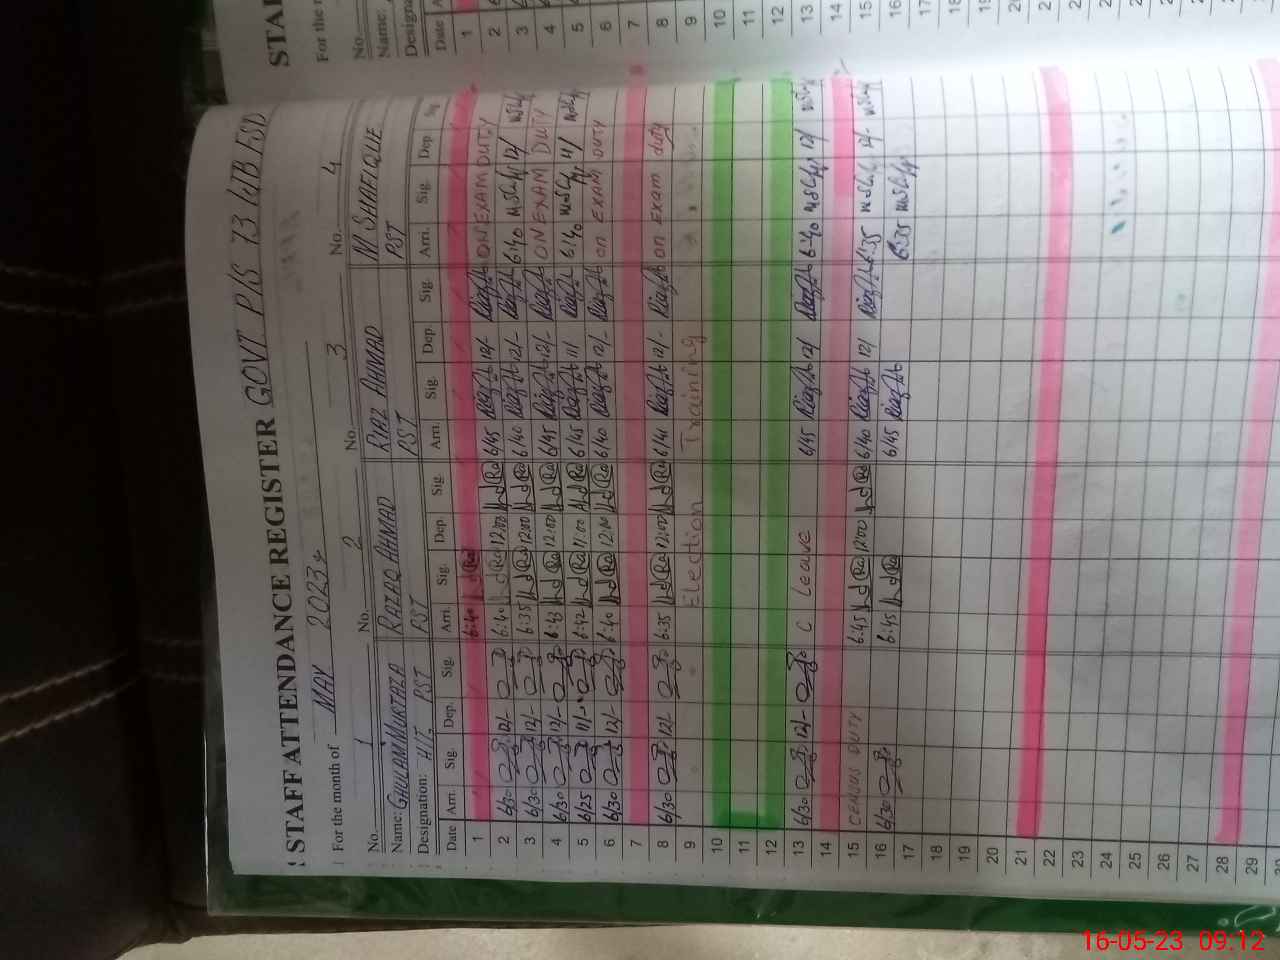 STAFF ATTENDANCE REGISTER GOVT P/S 73 WB FSD
For the month of MAY 2023
No. 1 No. 2 No. 3 No. 4
Name: GHULAM MURTAZA RAZAQ AHMAD RIAZ AHMAD M SHAFIQUE
Designation: H/T PST PST PST PST
Date Arri. Sig. Dep. Sig. Arri. Sig. Dep. Sig. Arri. Sig. Dep. Sig. Arri. Sig. Dep. Sig.
1 6:40 ON EXAM DUTY
2 6/30 12/- 6:40 12:00 6/45 12/- 6:40 12/
3 6/30 12/- 6:35 12:00 6/40 12/- ON EXAM DUTY
4 6/30 12/- 6:43 12:00 6/45 12/- 6:40 11/
5 6/25 11/- 6:42 11:00 6/45 11/ on EXAM DUTY
6 6/30 12/- 6:40 12:00 6/40 12/-
7
8 6/30 12/- 6:35 12:00 6/41 12/- on Exam duty
9 Election Training
10
11
12
13 6/30 12/- C Leave 6/45 12/ 6:40 12/
14
15 CENSUS DUTY 6:45 12:00 6/40 12/ 6:35 12/-
16 6/30 6:45 6/45 6:35
17
18
19
20
21
22
23
24
25
26
27
28
29
STA
For the
No.
Name:
Design
Date
1
2
3
4
5
6
7
8
9
10
11
12
13
14
15
16
17
18
19
20
16-05-23 09:12